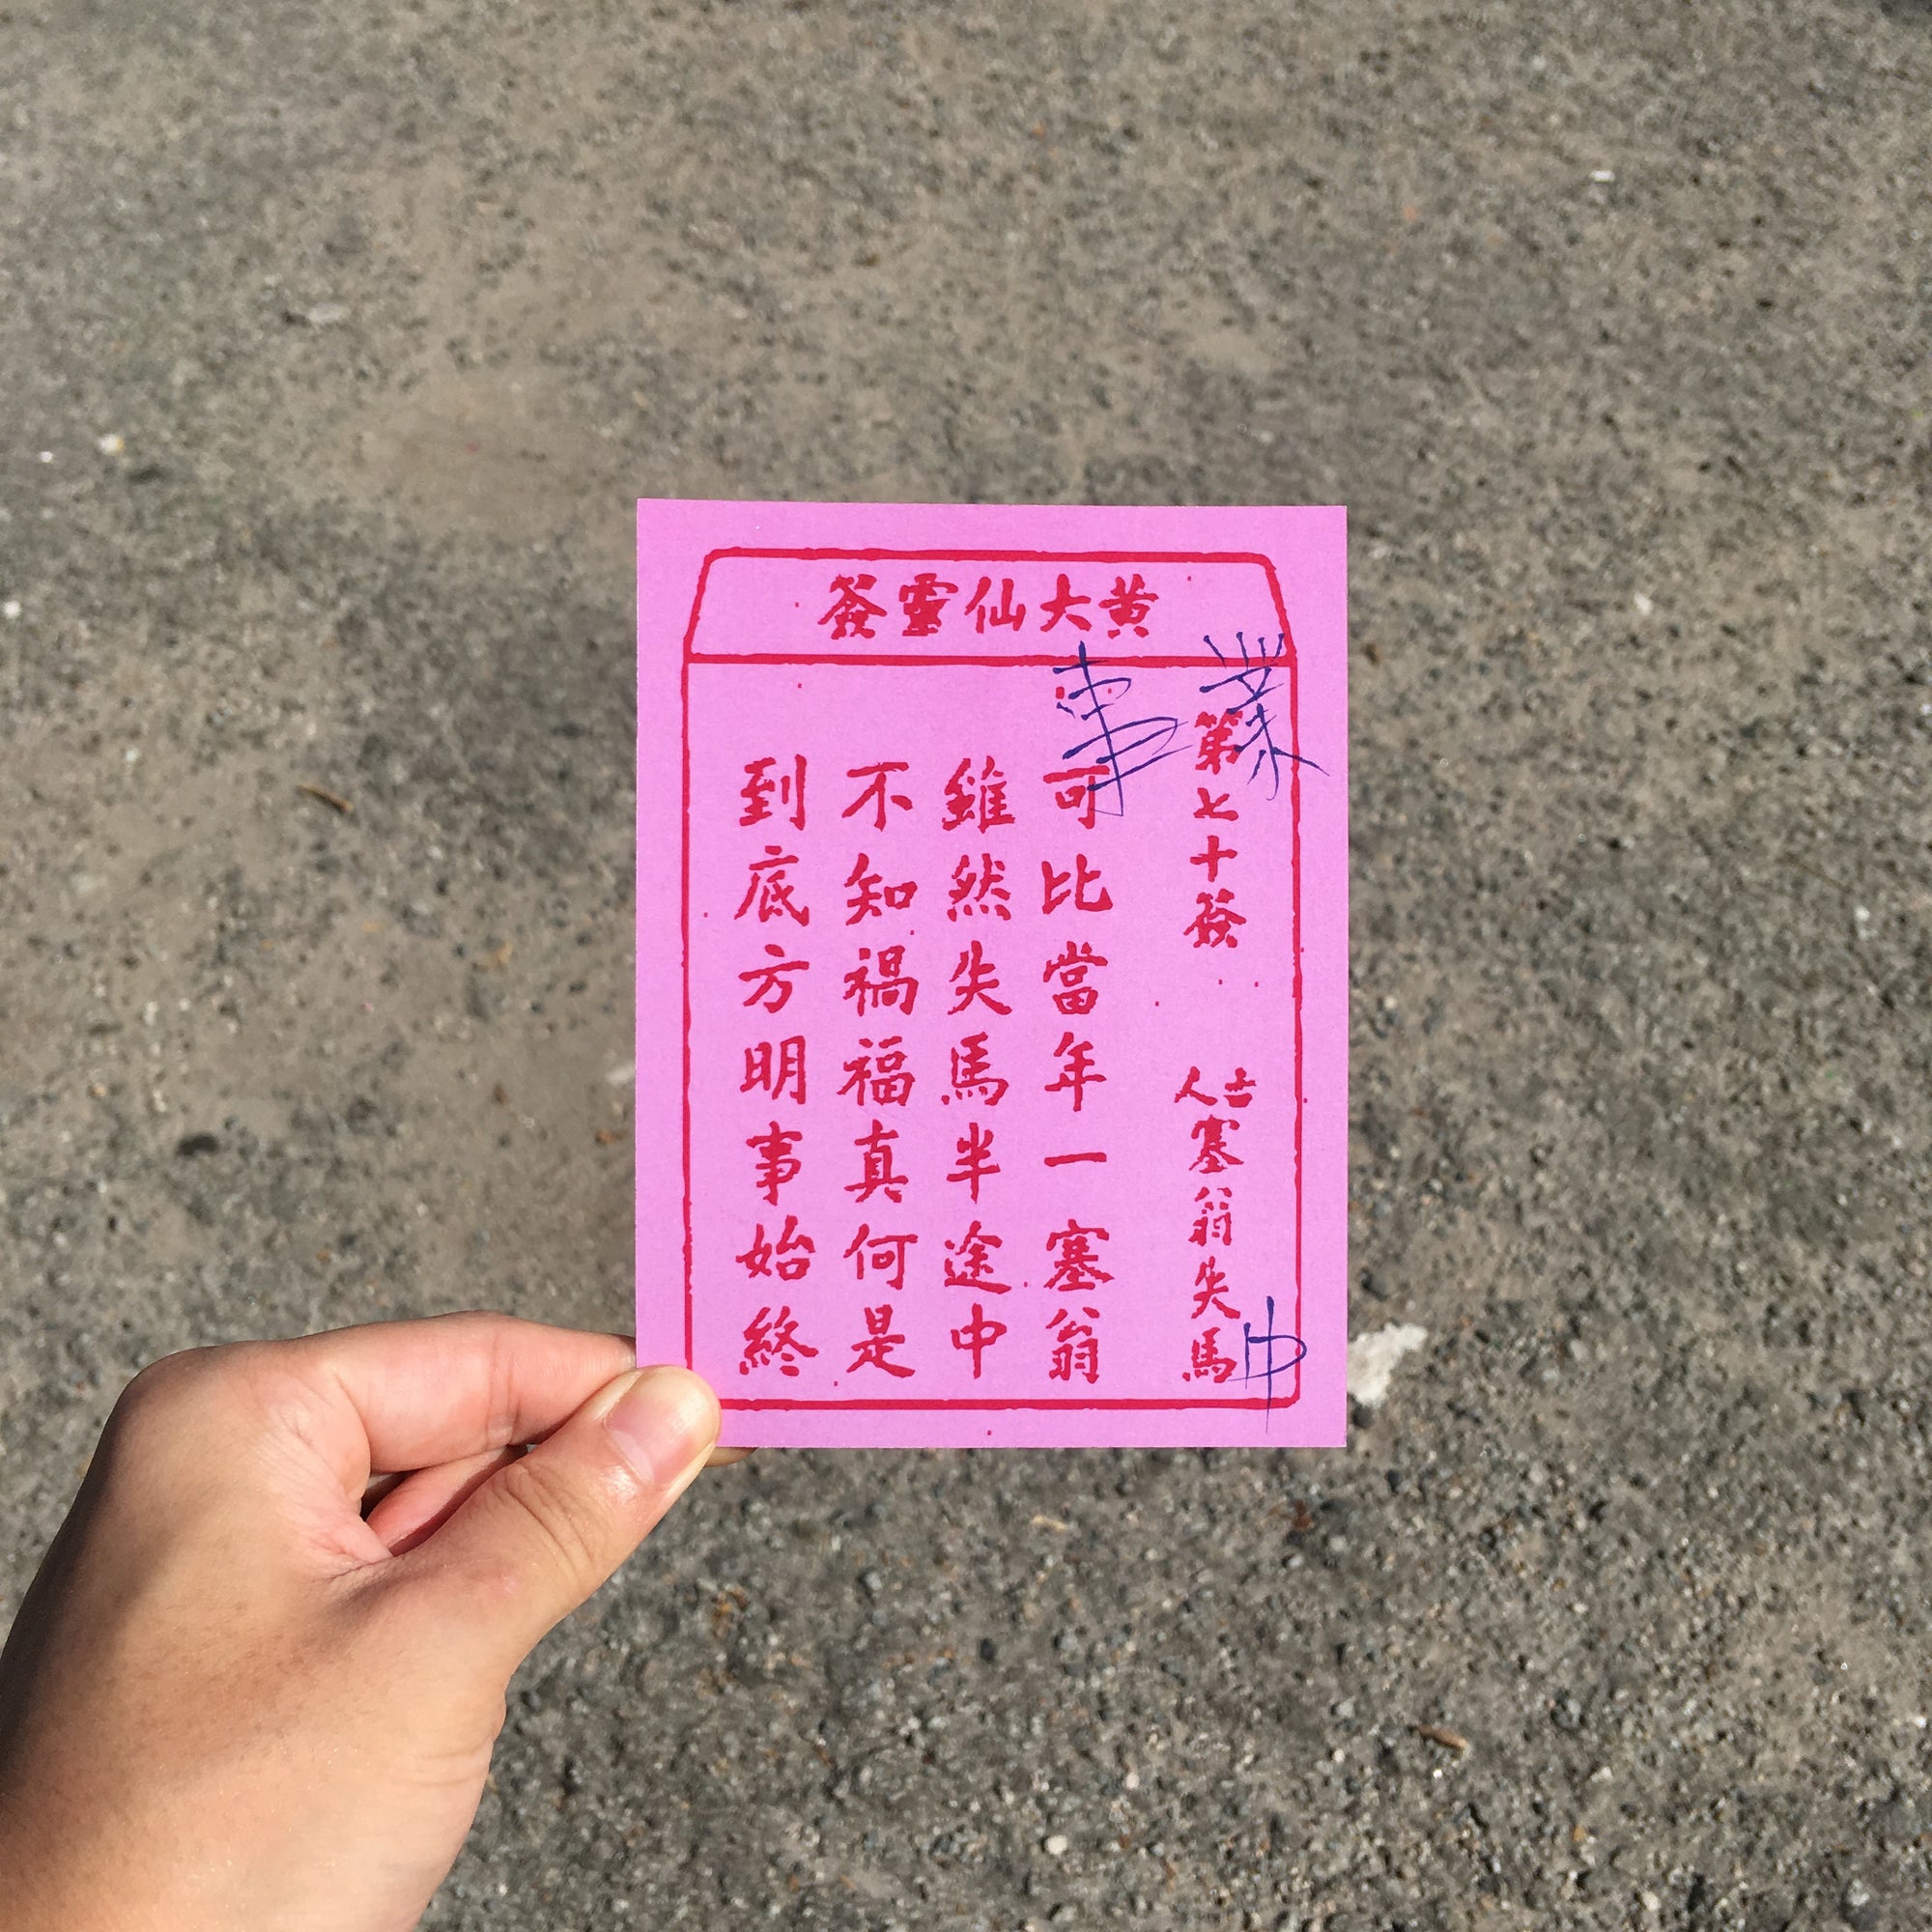 黄大仙靈簽
事業
第七十簽
古人塞翁失馬
中
可比當年一塞翁
雖然失馬半途中
不知禍福真何是
到底方明事始終